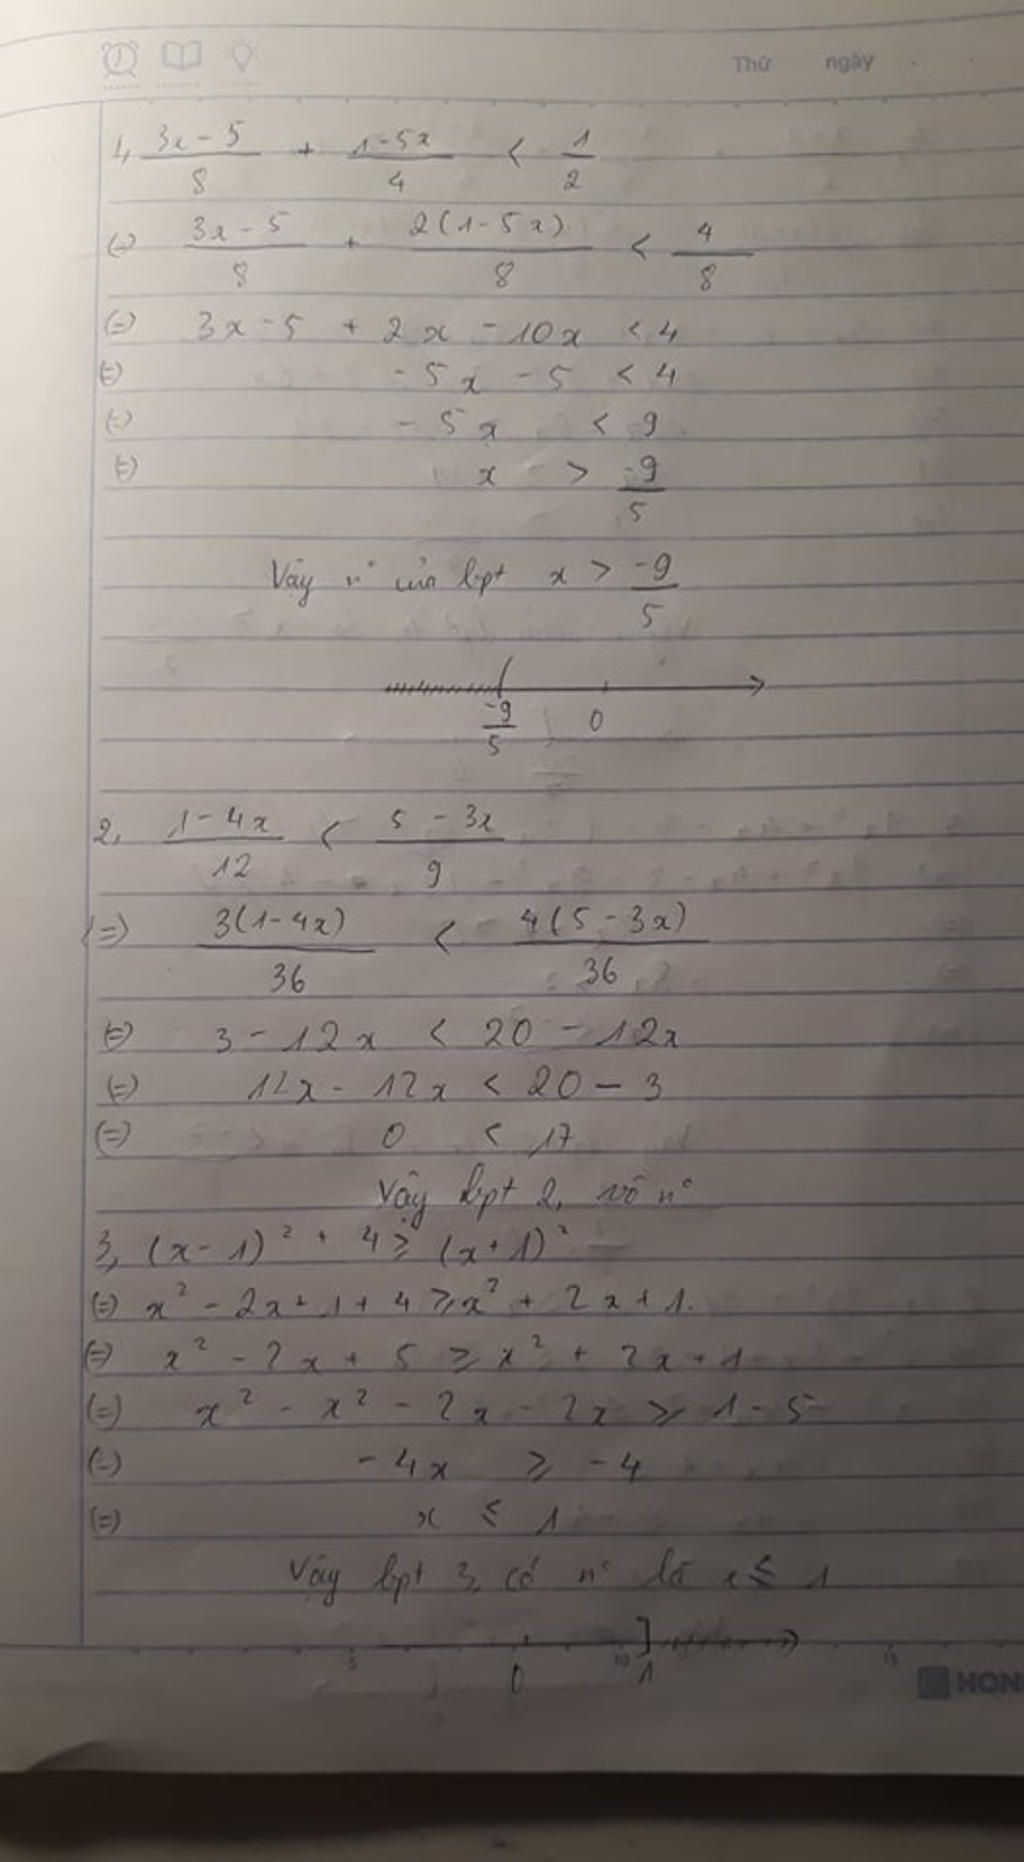 Thứ ngày
1, (3x - 5)/8 + (1 - 5x)/4 < 1/2
(=) (3x - 5)/8 + 2(1 - 5x)/8 < 4/8
(=) 3x - 5 + 2x - 10x < 4
(=) - 5x - 5 < 4
(=) - 5x < 9
(=) x > -9/5
Vậy n° của bpt x > -9/5
-9/5 0
2, (1 - 4x)/12 < (5 - 3x)/9
(=) 3(1 - 4x)/36 < 4(5 - 3x)/36
(=) 3 - 12x < 20 - 12x
(=) 12x - 12x < 20 - 3
(=) 0 < 17
Vậy bpt 2, vô n°
3, (x - 1)² + 4 ≥ (x + 1)²
(=) x² - 2x + 1 + 4 ≥ x² + 2x + 1.
(=) x² - 2x + 5 ≥ x² + 2x + 1
(=) x² - x² - 2x - 2x ≥ 1 - 5
(=) - 4x ≥ - 4
(=) x ≤ 1
Vậy bpt 3, có n° là x ≤ 1
5 10 15
0 1
HON